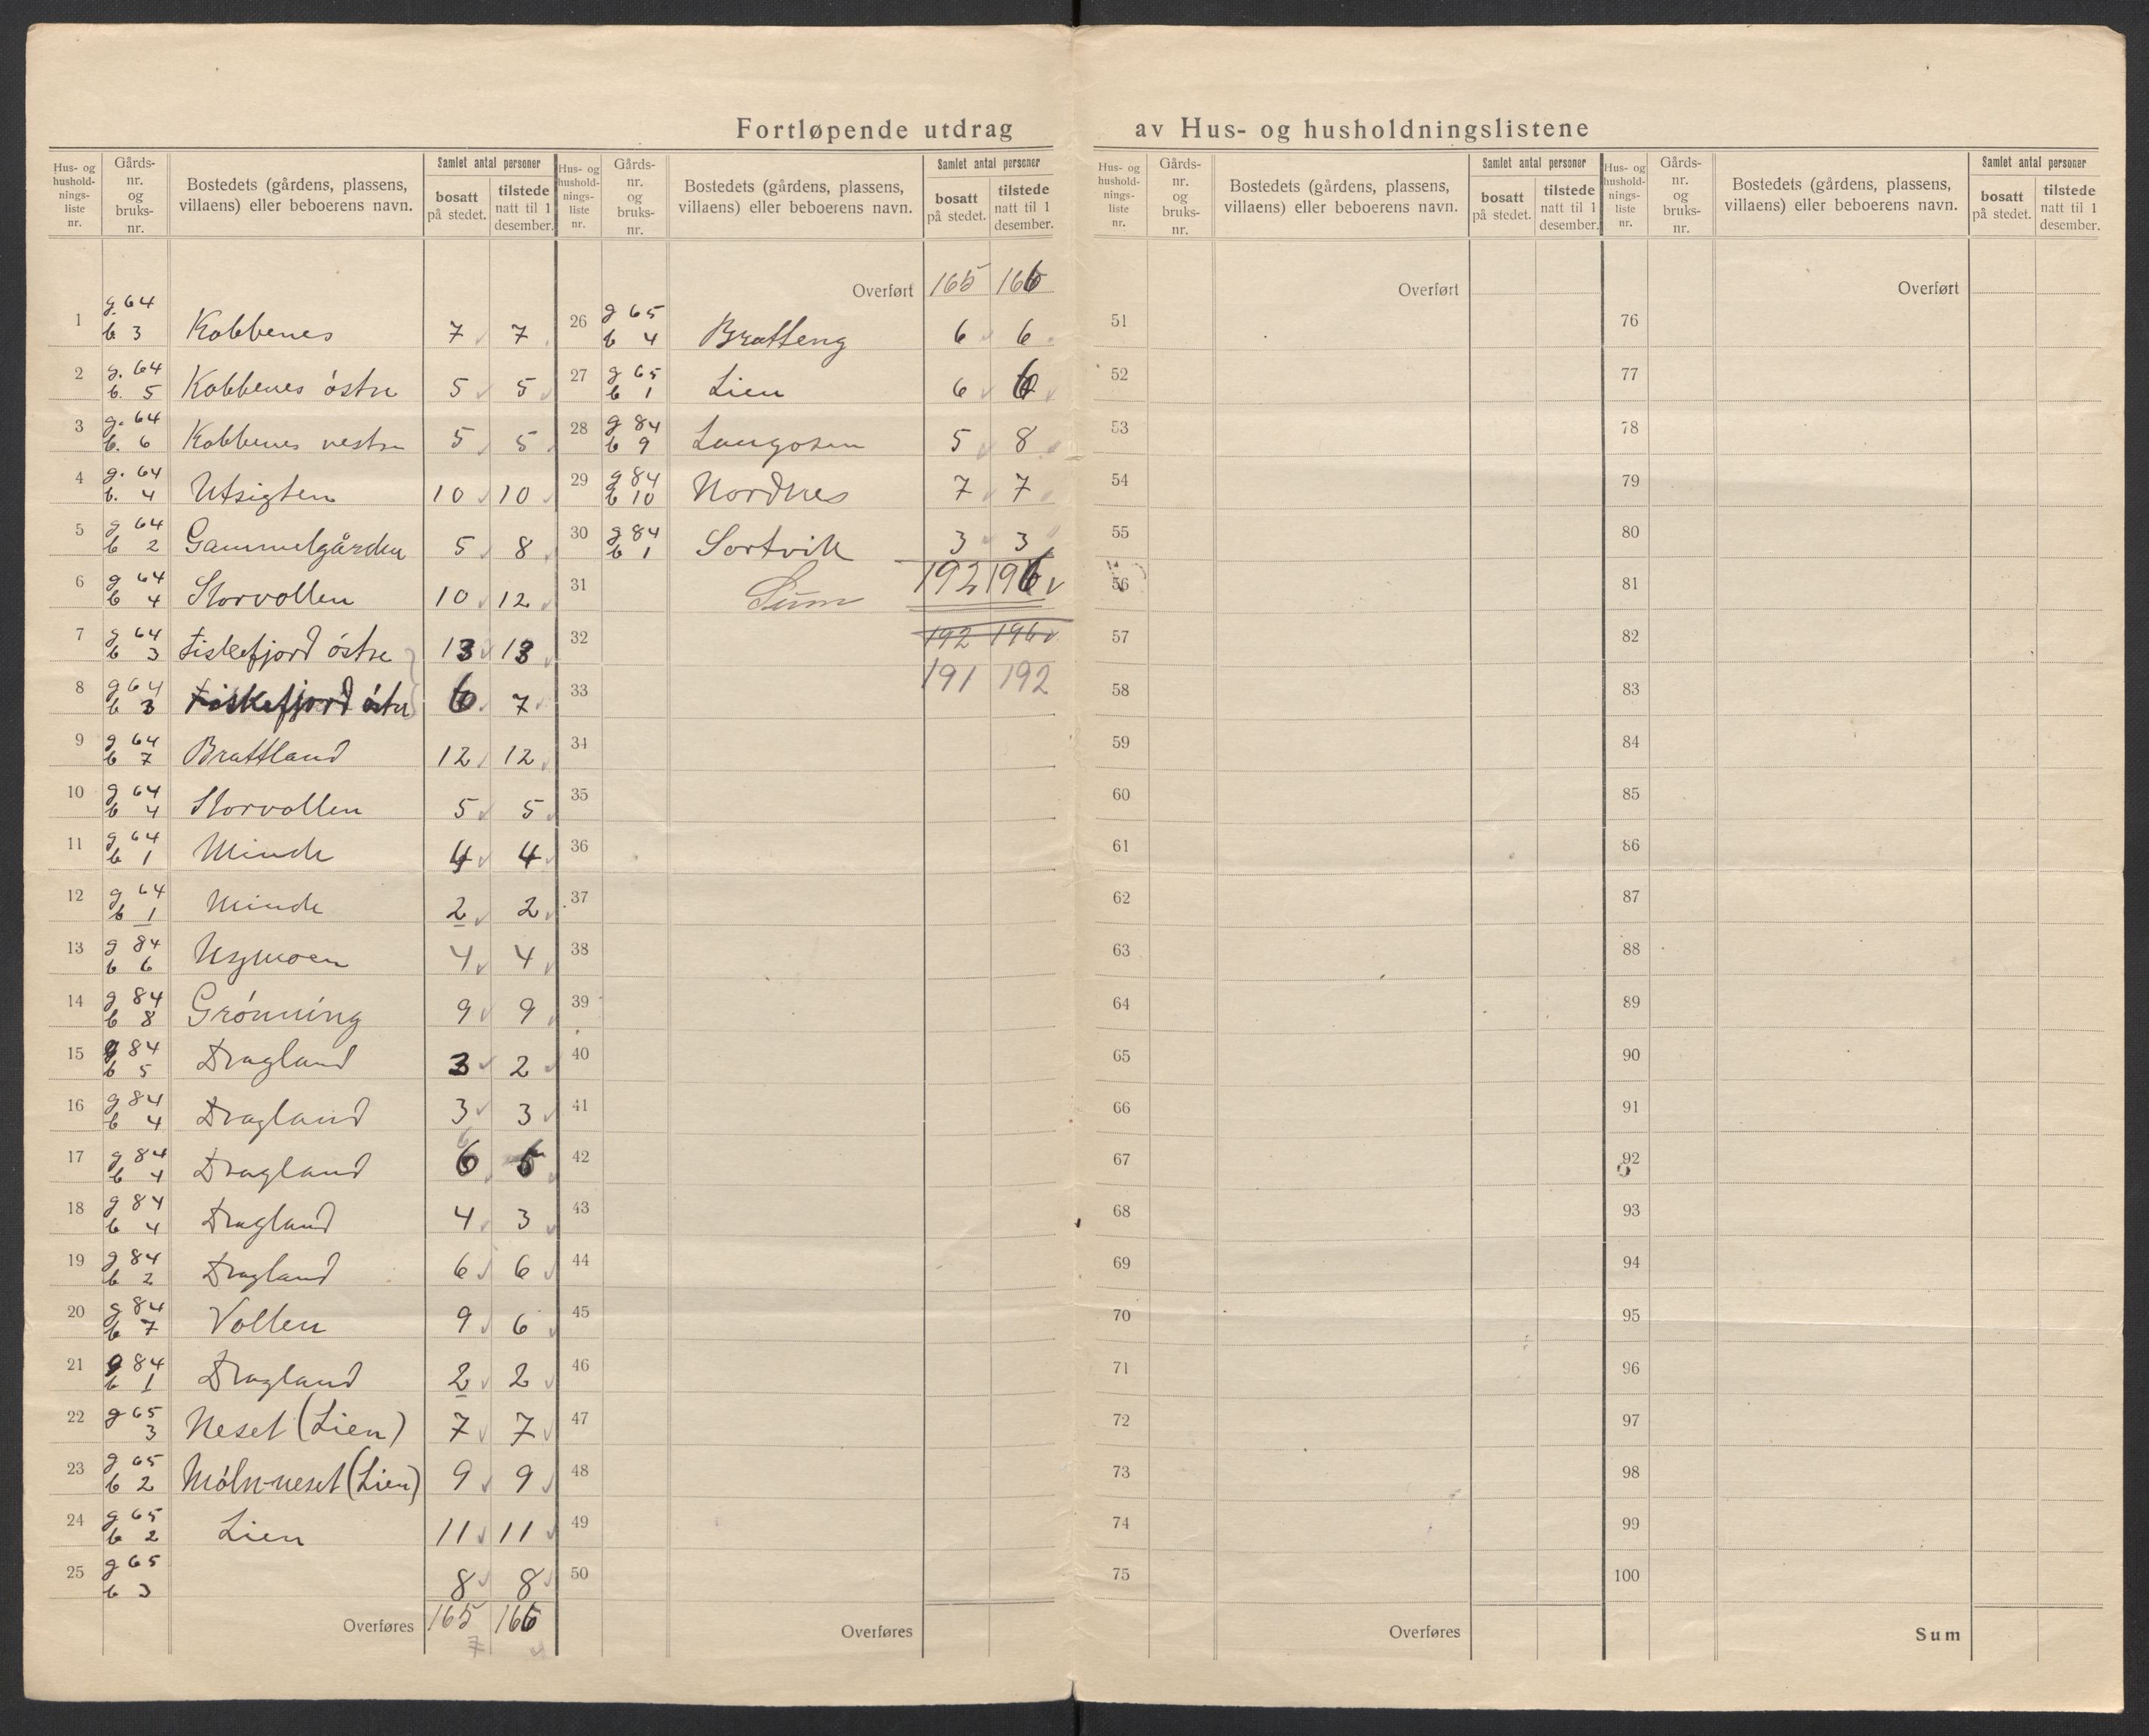 Fortløpende utdrag av Hus- og husholdningslistene
Hus- og hushold- nings- liste nr. | Gårds- nr. og bruks- nr. | Bostedets (gårdens, plassens, villaens) eller beboerens navn. | Samlet antal personer | bosatt på stedet. | tilstede natt til 1 desember.
1 g. 64 b 3 Kobbenes 7 7
2 g. 64 b. 5 Kobbenes östre 5 5
3 g. 64 b. 6 Kobbenes vestre 5 5
4 g. 64 b. 4 Utsigten 10 10
5 g 64 b 2 Gammelgården 5 8
6 g 64 b 4 Storvollen 10 12
7 g 64 b 3 Fiskefjord östre 13 13
8 g 64 b 3 Fiskefjord östre 6 7
9 g 64 b 7 Brattland 12 12
10 g 64 b 4 Storvollen 5 5
11 g 64 b 1 Minde 4 4
12 g 64 b 1 Minde 2 2
13 g 84 b 6 Nymoen 4 4
14 g 84 b 8 Grönning 9 9
15 g 84 b 5 Dragland 3 2
16 g 84 b 4 Dragland 3 3
17 g 84 b 4 Dragland 6 6
18 g 84 b 4 Dragland 4 3
19 g 84 b 2 Dragland 6 6
20 g 84 b 7 Vollen 9 6
21 g 84 b 1 Dragland 2 2
22 g 65 3 Neset (Lien) 7 7
23 g 65 b 2 Möln-neset (Lien) 9 9
24 g 65 b 2 Lien 11 11
25 g 65 b 3 8 8
Overføres 165 166
7
Hus- og hushold- nings- liste nr. | Gårds- nr. og bruks- nr. | Bostedets (gårdens, plassens, villaens) eller beboerens navn. | Samlet antal personer | bosatt på stedet. | tilstede natt til 1 desember.
Overført 165 166
26 g 65 b 4 Bratteng 6 6
27 g 65 b 1 Lien 6 6
28 g 84 b 9 Langosen 5 8
29 g 84 b 10 Nordnes 7 7
30 g 84 b 1 Sortvik 3 3
31 Sum 192 196
32 192 196
33 191 192
34
35
36
37
38
39
40
41
42
43
44
45
46
47
48
49
50
Overføres
Hus- og hushold- nings- liste nr. | Gårds- nr. og bruks- nr. | Bostedets (gårdens, plassens, villaens) eller beboerens navn. | Samlet antal personer | bosatt på stedet. | tilstede natt til 1 desember.
Overført
51
52
53
54
55
56
57
58
59
60
61
62
63
64
65
66
67
68
69
70
71
72
73
74
75
Overføres
Hus- og hushold- nings- liste nr. | Gårds- nr. og bruks- nr. | Bostedets (gårdens, plassens, villaens) eller beboerens navn. | Samlet antal personer | bosatt på stedet. | tilstede natt til 1 desember.
Overført
76
77
78
79
80
81
82
83
84
85
86
87
88
89
90
91
92
93
94
95
96
97
98
99
100
Sum